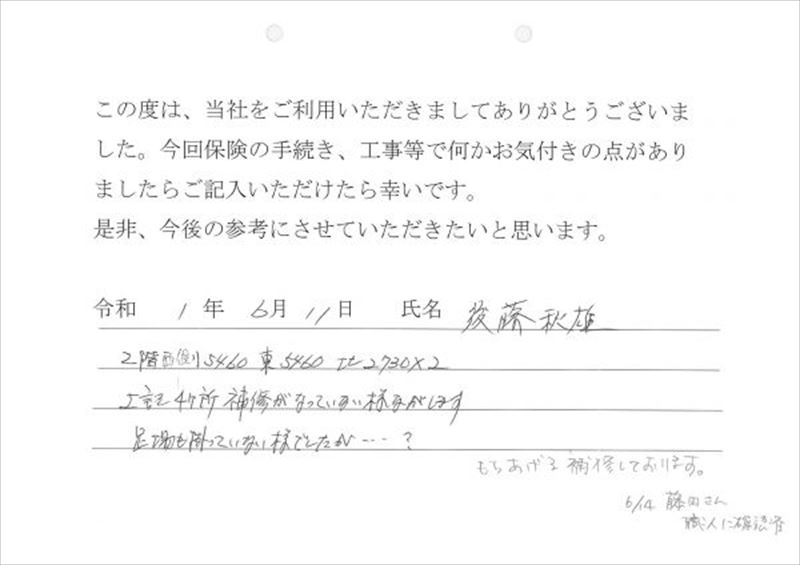 この度は、当社をご利用いただきましてありがとうございま
した。今回保険の手続き、工事等で何かお気付きの点があり
ましたらご記入いただけたら幸いです。
是非、今後の参考にさせていただきたいと思います。
令和 1 年 6月 11日 氏名 後藤秋雄
2階西側5460 東5460 北2730×2
上記4ケ所補修がなっていない様な気がします
足場も掛っていない様でしたが……?
もちあげて補修しております。
6/14 藤田さん
職人に確認済